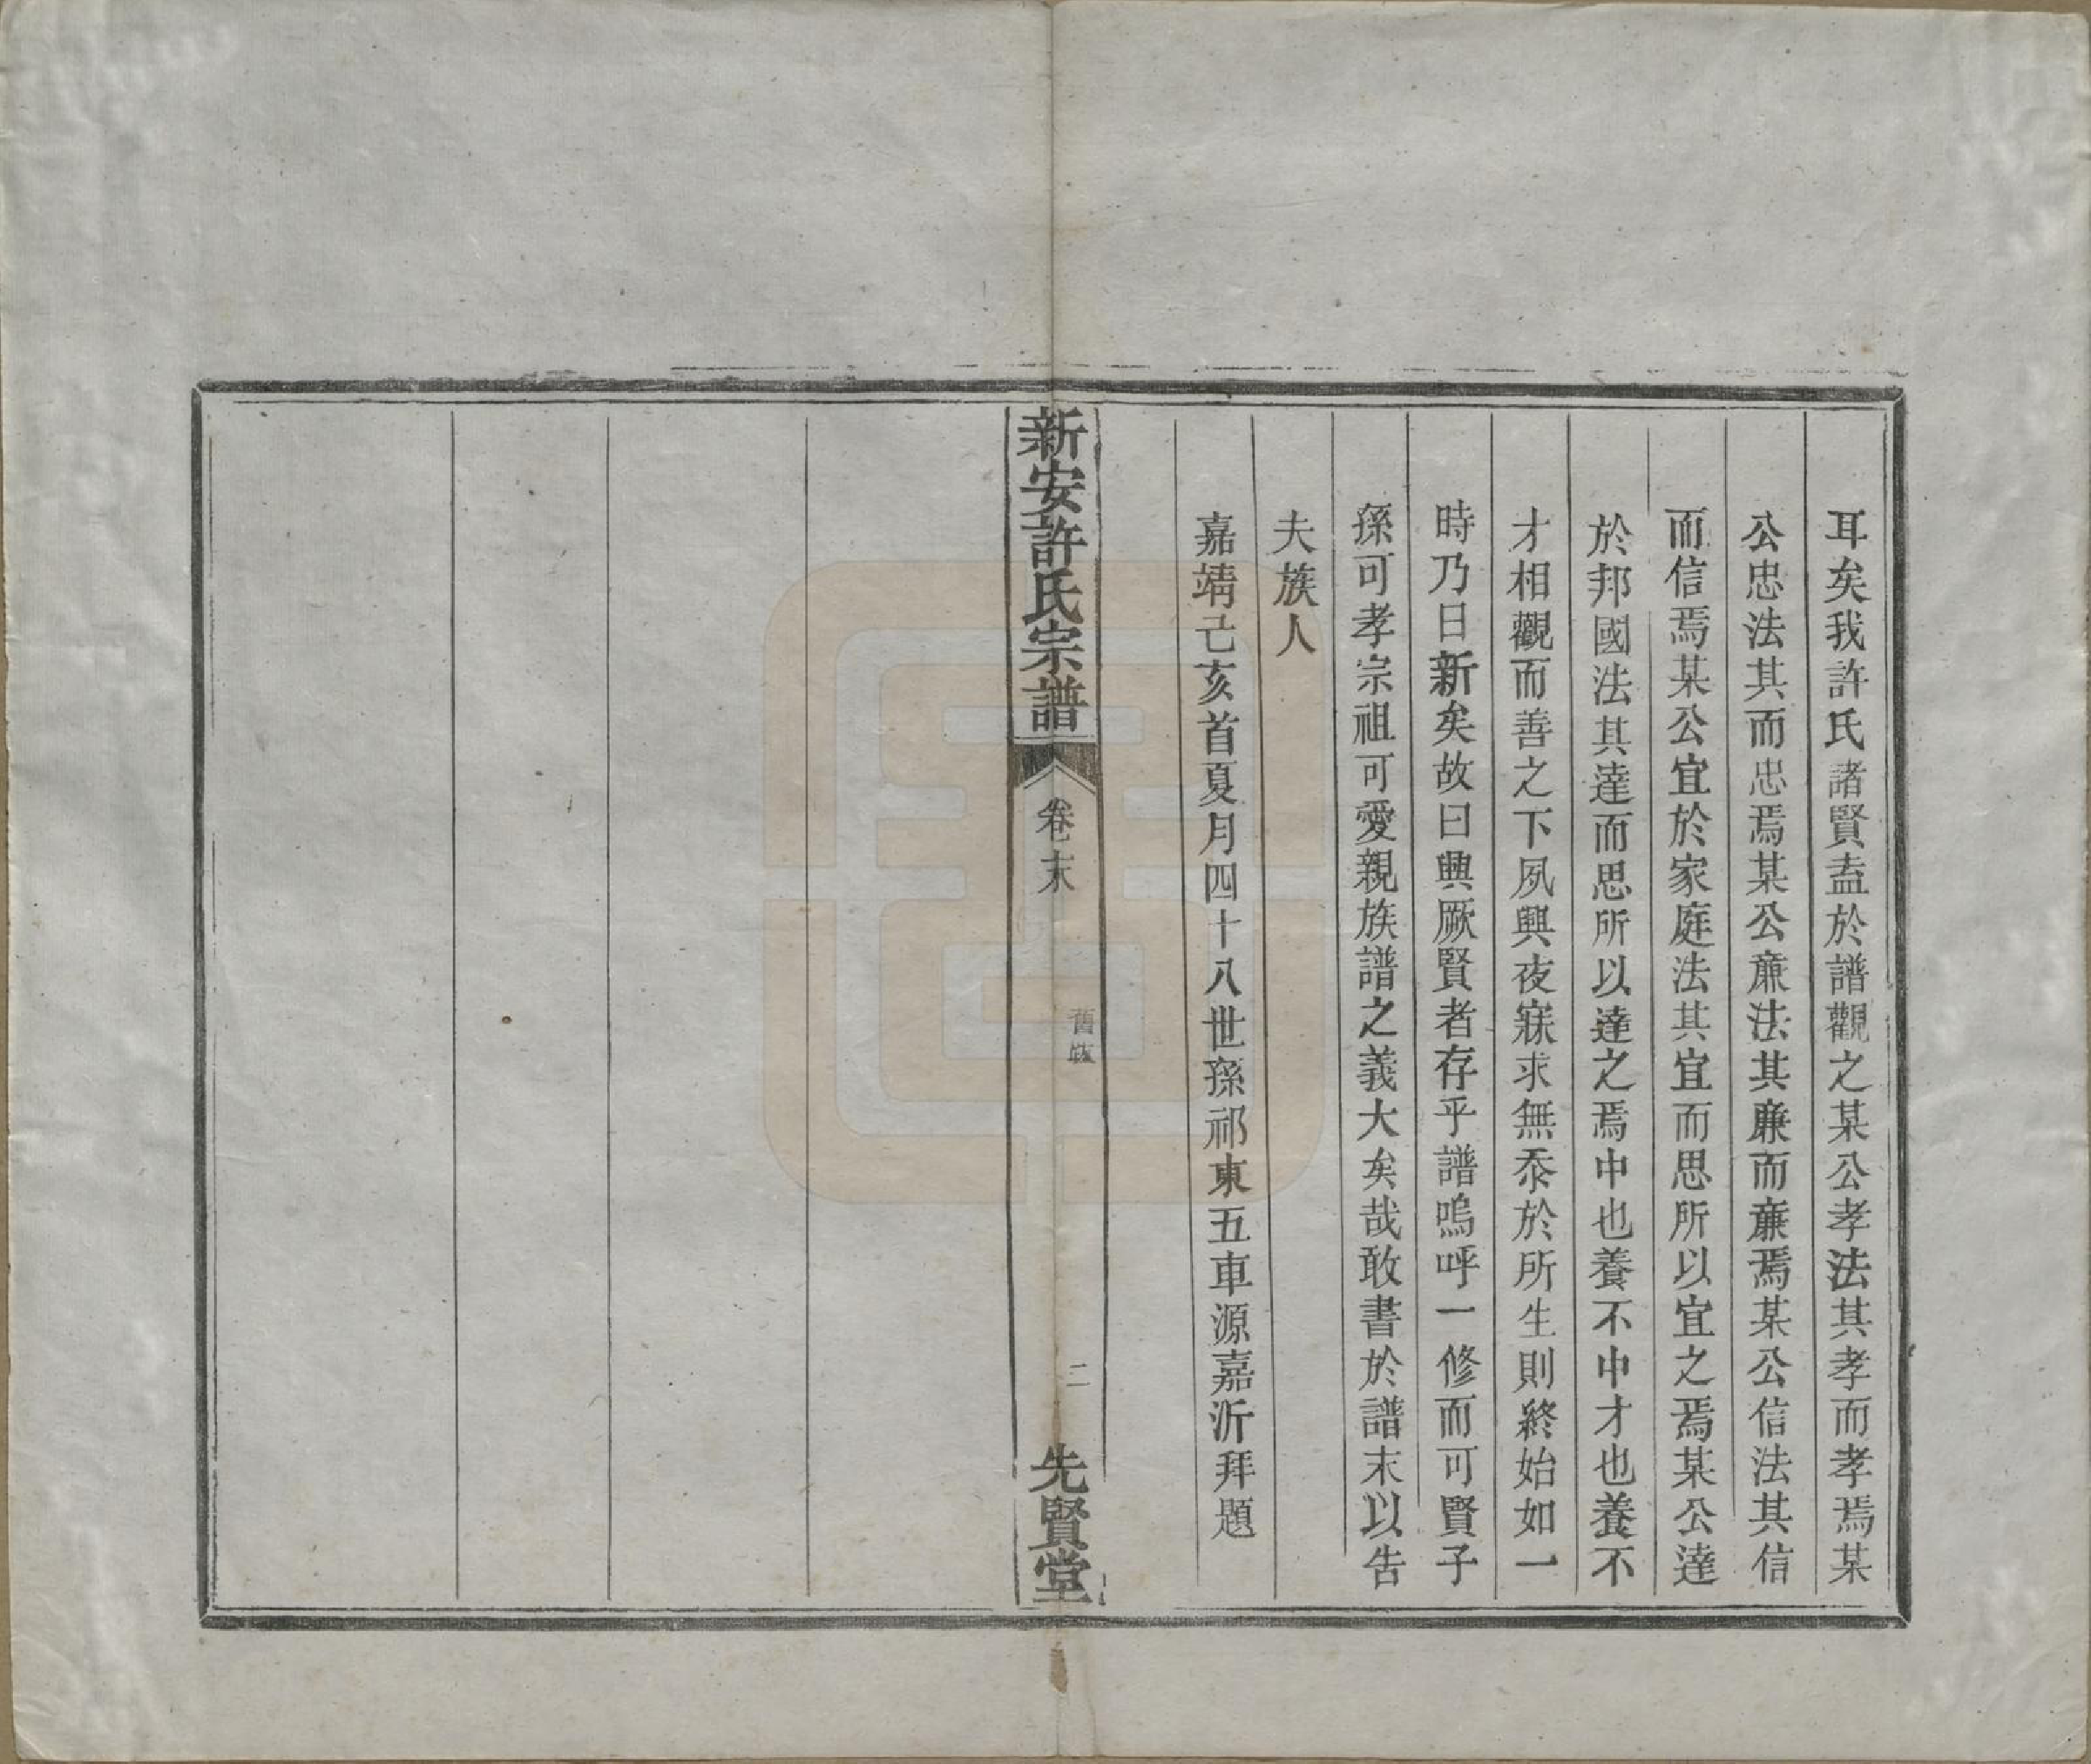 耳矣我許氏諸賢盍於譜觀之某公孝法其孝而孝焉某
公忠法其而忠焉某公亷法其亷而亷焉某公信法其信
而信焉某公宜於家庭法其宜而思所以宜之焉某公達
於邦國法其達而思所以達之焉中也養不中才也養不
才相觀而善之下夙興夜寐求無忝於所生則終始如一
時乃日新矣故曰興厥賢者存乎譜嗚呼一修而可賢子
孫可孝宗祖可愛親族譜之義大矣哉敢書於譜末以告
夫族人
嘉靖己亥首夏月四十八世孫祁東五車源嘉沂拜題
新安許氏宗譜
卷末
舊䟦
二
先賢堂